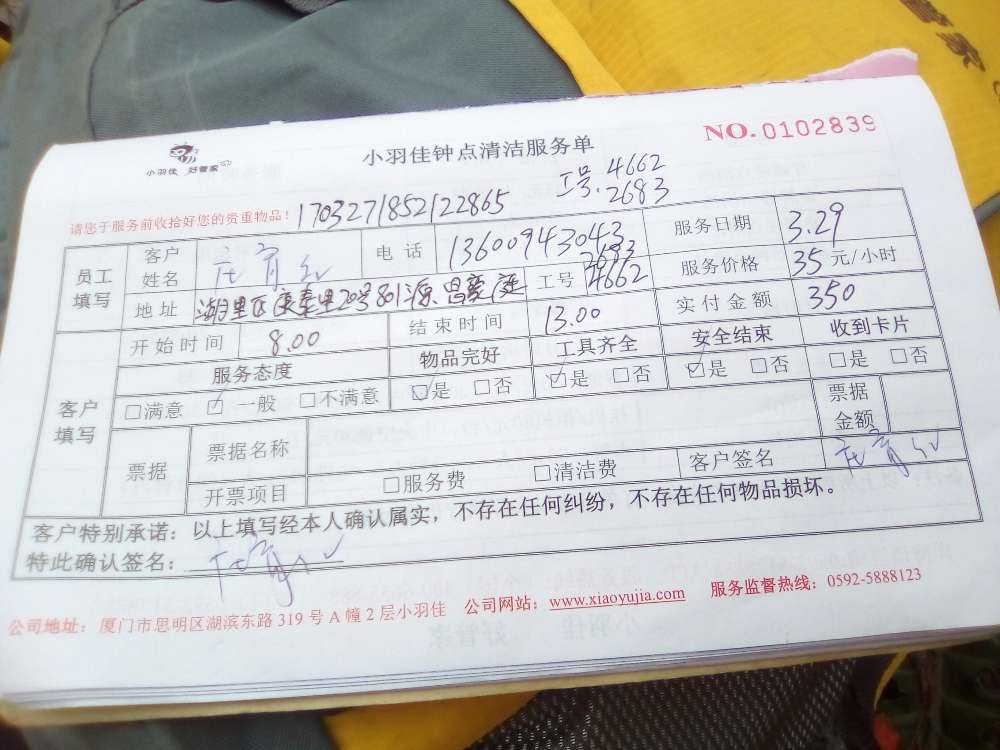 管家
小羽佳 好管家
小羽佳钟点清洁服务单
NO.0102839
工号:4662
2683
请您于服务前收拾好您的贵重物品!
170327185212 2865
员工填写
客户姓名
电话 13600943043
服务日期 3.29
地址 湖里区康泰里20号801源昌豪庭
工号 2683 4662
服务价格 35元/小时
客户填写
开始时间 8.00
结束时间 13.00
实付金额 350
服务态度 物品完好 工具齐全 安全结束 收到卡片
□满意 ☑一般 □不满意 ☑是 □否 ☑是 □否 ☑是 □否 □是 □否
票据 票据名称 票据金额
开票项目 □服务费 □清洁费 客户签名
客户特别承诺:以上填写经本人确认属实,不存在任何纠纷,不存在任何物品损坏。
特此确认签名:
公司地址:厦门市思明区湖滨东路319号A幢2层小羽佳 公司网站:www.xiaoyujia.com 服务监督热线:0592-5888123